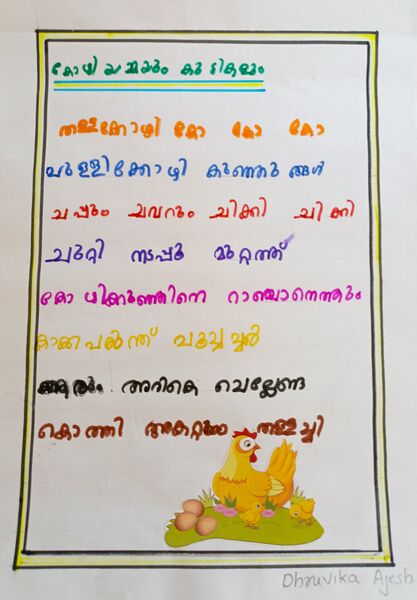 കോഴിയമ്മയും കുട്ടികളും
തള്ളക്കോഴി കോ കോ കോ
പുള്ളിക്കോഴി കുഞ്ഞുങ്ങൾ
ചപ്പും ചവറും ചിക്കി ചിക്കി
ചുറ്റി നടപ്പൂ മുറ്റത്ത്
കോഴിക്കുഞ്ഞിനെ റാഞ്ചാനെത്തും
കാക്ക പരുന്ത് പൂച്ചച്ചൻ
ആരും അരികെ ചെല്ലേണ്ട
കൊത്തി അകറ്റും തള്ളച്ചി
Dhruvika Ajesh